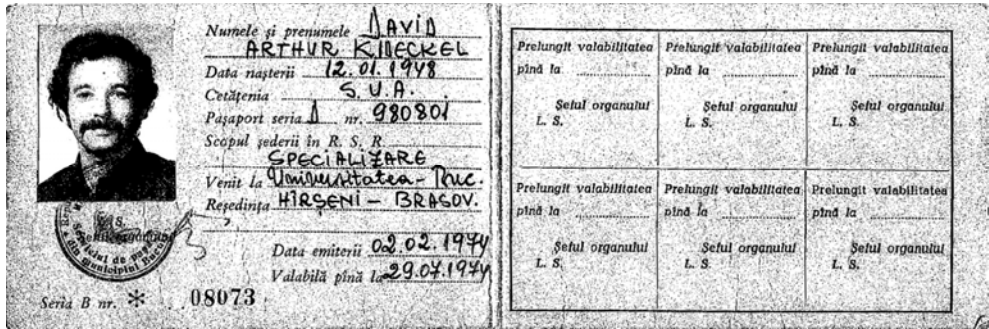 Numele și prenumele DAVID
ARTHUR KIDECKEL
Data nașterii 12.01.1948
Cetățenia S.U.A.
Pașaport seria D nr. 980801
Scopul șederii în R. S. R.
SPECIALIZARE
Venit la Universitatea - Buc.
Reședința HÎRSENI - BRASOV.
Data emiterii 02.02.1974
Valabilă pînă la 29.07.1974
L. S.
din municipiul
Seria B nr. * 08073
Prelungit valabilitatea
pînă la
Șeful organului
L. S.
Prelungit valabilitatea
pînă la
Șeful organului
L. S.
Prelungit valabilitatea
pînă la
Șeful organului
L. S.
Prelungit valabilitatea
pînă la
Șeful organului
L. S.
Prelungit valabilitatea
pînă la
Șeful organului
L. S.
Prelungit valabilitatea
pînă la
Șeful organului
L. S.